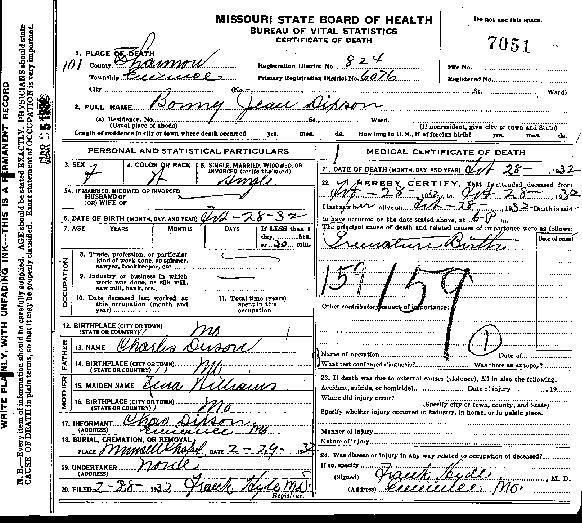 MISSOURI STATE BOARD OF HEALTH
BUREAU OF VITAL STATISTICS
CERTIFICATE OF DEATH
Do not use this space.
7051
1. PLACE OF DEATH
101 County Shannon
Registration District No. 824
File No.
Township Eminence
Primary Registration District No. 6076
Registered No.
City (No. St. Ward)
2. FULL NAME Bonny Jean Dixson
(a) Residence, No. St., Ward.
(Usual place of abode) (If nonresident, give city or town and State)
Length of residence in city or town where death occurred yrs. mos. ds. How long in U. S., if of foreign birth? yrs. mos. ds.
PERSONAL AND STATISTICAL PARTICULARS
3. SEX F
4. COLOR OR RACE W
5. SINGLE, MARRIED, WIDOWED, OR DIVORCED (write the word) Single
5A. IF MARRIED, WIDOWED, OR DIVORCED
HUSBAND OF
(OR) WIFE OF
6. DATE OF BIRTH (MONTH, DAY, AND YEAR) Feb-28-32
7. AGE YEARS MONTHS DAYS If LESS than 1 day, hrs. or 30 min.
OCCUPATION
8. Trade, profession, or particular kind of work done, as spinner, sawyer, bookkeeper, etc.
9. Industry or business in which work was done, as silk mill, saw mill, bank, etc.
10. Date deceased last worked at this occupation (month and year)
11. Total time (years) spent in this occupation
12. BIRTHPLACE (CITY OR TOWN) (STATE OR COUNTRY) Mo
FATHER
13. NAME Charlis Dixson
14. BIRTHPLACE (CITY OR TOWN) (STATE OR COUNTRY) Mo.
MOTHER
15. MAIDEN NAME Williams
16. BIRTHPLACE (CITY OR TOWN) (STATE OR COUNTRY) Mo
17. INFORMANT Chas Dixson
(ADDRESS) Eminence Mo.
18. BURIAL, CREMATION, OR REMOVAL
PLACE Chapel DATE 2-29-32
19. UNDERTAKER None
(ADDRESS)
20. FILED 2-28-32 Frank Hyde MD.
Registrar.
MEDICAL CERTIFICATE OF DEATH
21. DATE OF DEATH (MONTH, DAY, AND YEAR) Feb 28- 1932
22. I HEREBY CERTIFY, That I attended deceased from
Feb-28 Feb-28- 1932
Feb-28- 1932 Death is said
to have occurred on the date stated above, at 6-P m.
The principal cause of death and related causes of importance were as follows:
Date of onset
Premature Birth
159 159
Other contributory causes of importance:
1
Name of operation Date of
What test confirmed diagnosis? Was there an autopsy?
23. If death was due to external causes (violence), fill in also the following:
Accident, suicide, or homicide? Date of injury 19
Where did injury occur?
(Specify city or town, county, and State)
Specify whether injury occurred in industry, in home, or in public place.
Manner of injury
Nature of injury
24. Was disease or injury in any way related to occupation of deceased?
If so, specify
(Signed) Frank Hyde, M. D.
(Address) Eminence Mo.
WRITE PLAINLY, WITH UNFADING INK---THIS IS A PERMANENT RECORD
N. B.—Every item of information should be carefully supplied. AGE should be stated EXACTLY. PHYSICIANS should state
CAUSE OF DEATH in plain terms, so that it may be properly classified. Exact statement of OCCUPATION is very important.